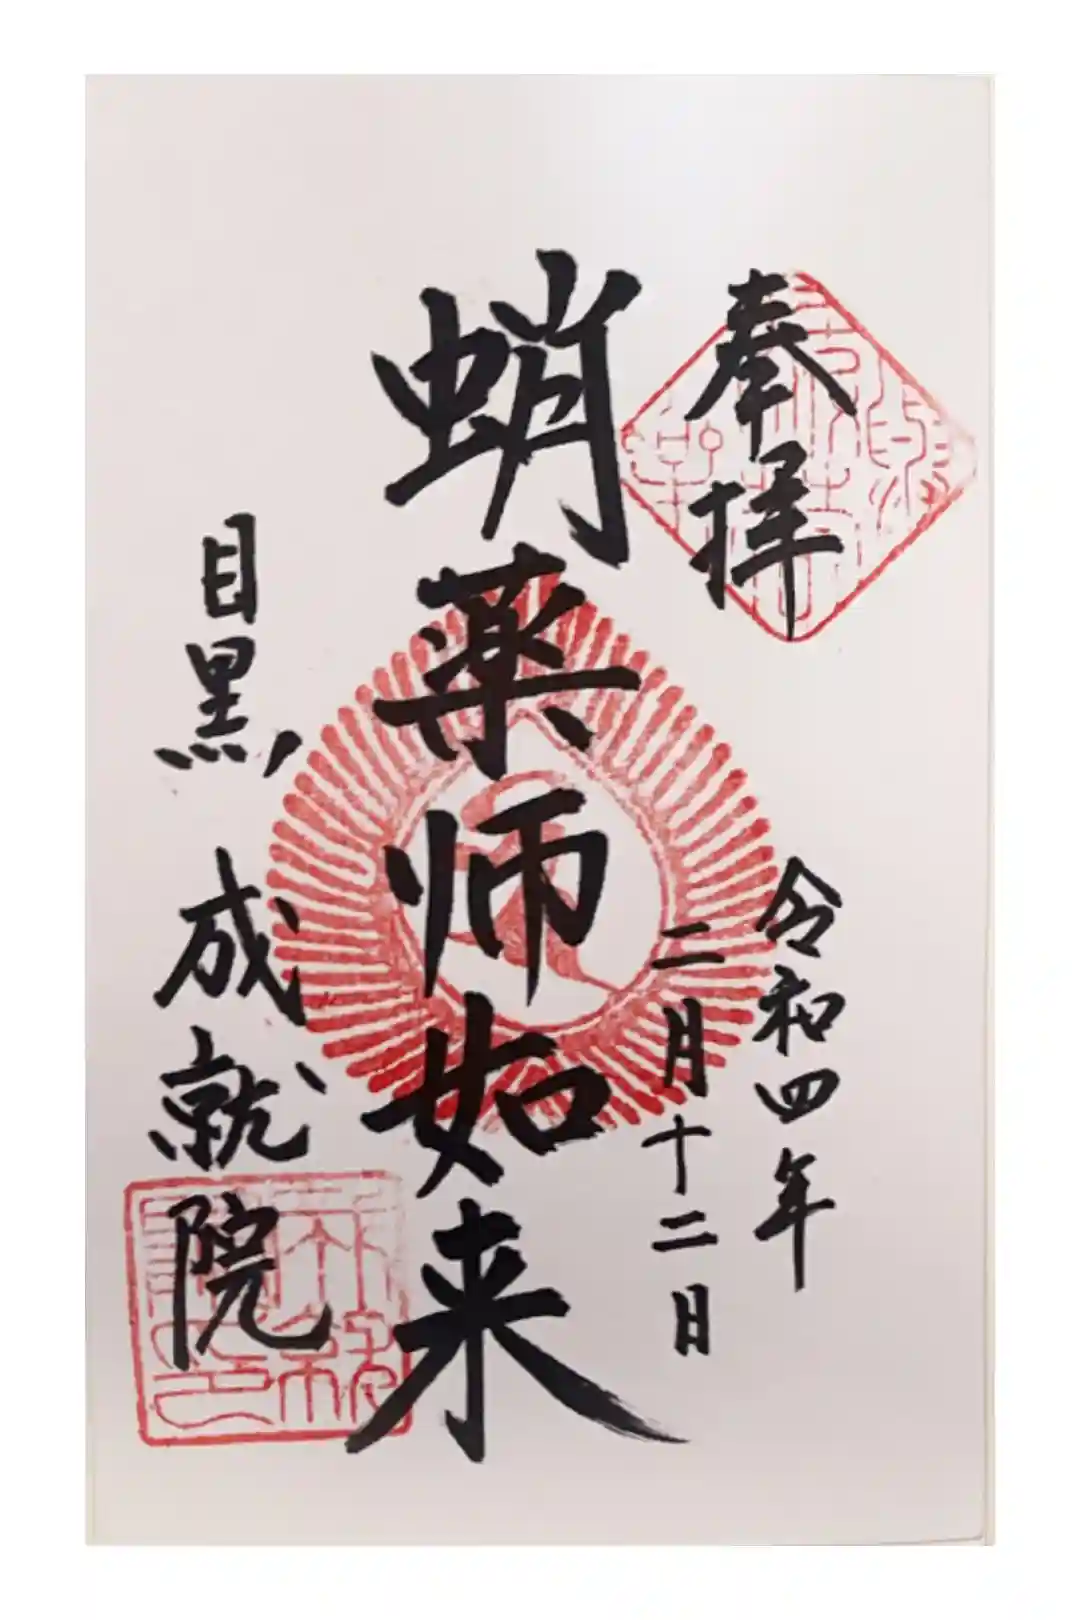 奉拝
令和四年
二月十二日
蛸薬师如来
目黒 成就院